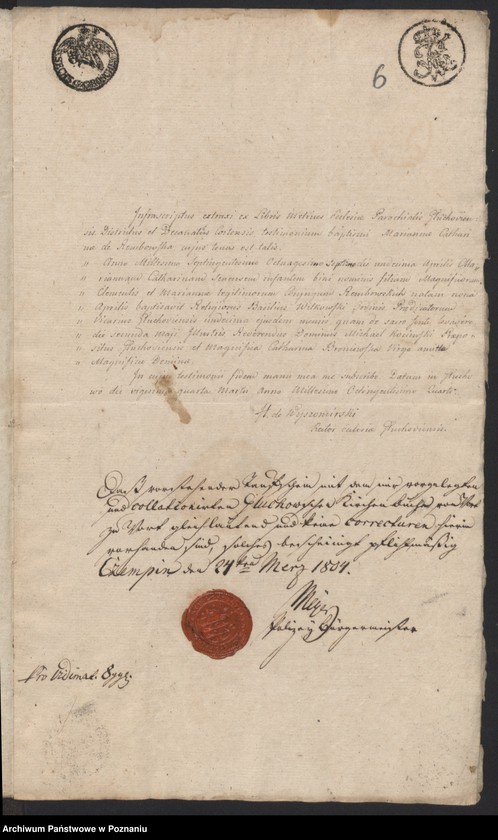 6
Infrascriptus extraxi ex Libris Metrices Ecclesiae Parochialis Głuchovien-
sis Districtus et Decanatus Costensis testimonium baptismi Marianna Cathari-
na de Rembowska cujus tenor est talis.
Anno Millesimo Septingentesimo Octuagesimo Septimo die undecima Aprilis Ma-
riannam Catharinam Scannorem infantem bini nominis filiam Magnificorum
Clementis et Marianna legitimorum Conjugum Rembowskich natam nona
Aprilis baptisavit Religiosus Basilius Witkowski Ordinis Praedicatorum
Vicarius Głuchoviensis
die secunda Maji Illustris Reverendus Dominus Michael Kosinski Prepo-
situs Głuchoviensis et Magnifica Catharina Bronikowska Virgo ambo
Magnifica Domini.
In cujus testimonii fidem manu mea me subscribo Datum in Głucho-
wo die vigesima quarta Martii Anno Millesimo Octingentesimo Quarto.
St. de Wyszomirski
Rector Ecclesia Głuchoviensis.
Daß vorstehender Taufschein mit dem mir vorgelegten
und collationirten Gluchowschen Kirchen Buche von Wort
zu Wort gleichlautend und keine Correcturen hierin
vorhanden sind, solches bescheinigt pflichtmäßig
Czempin den 24ten Merz 1804.
Polizey Bürgermeister
Pro Vidimat. 8 ggr.
Archiwum Państwowe w Poznaniu